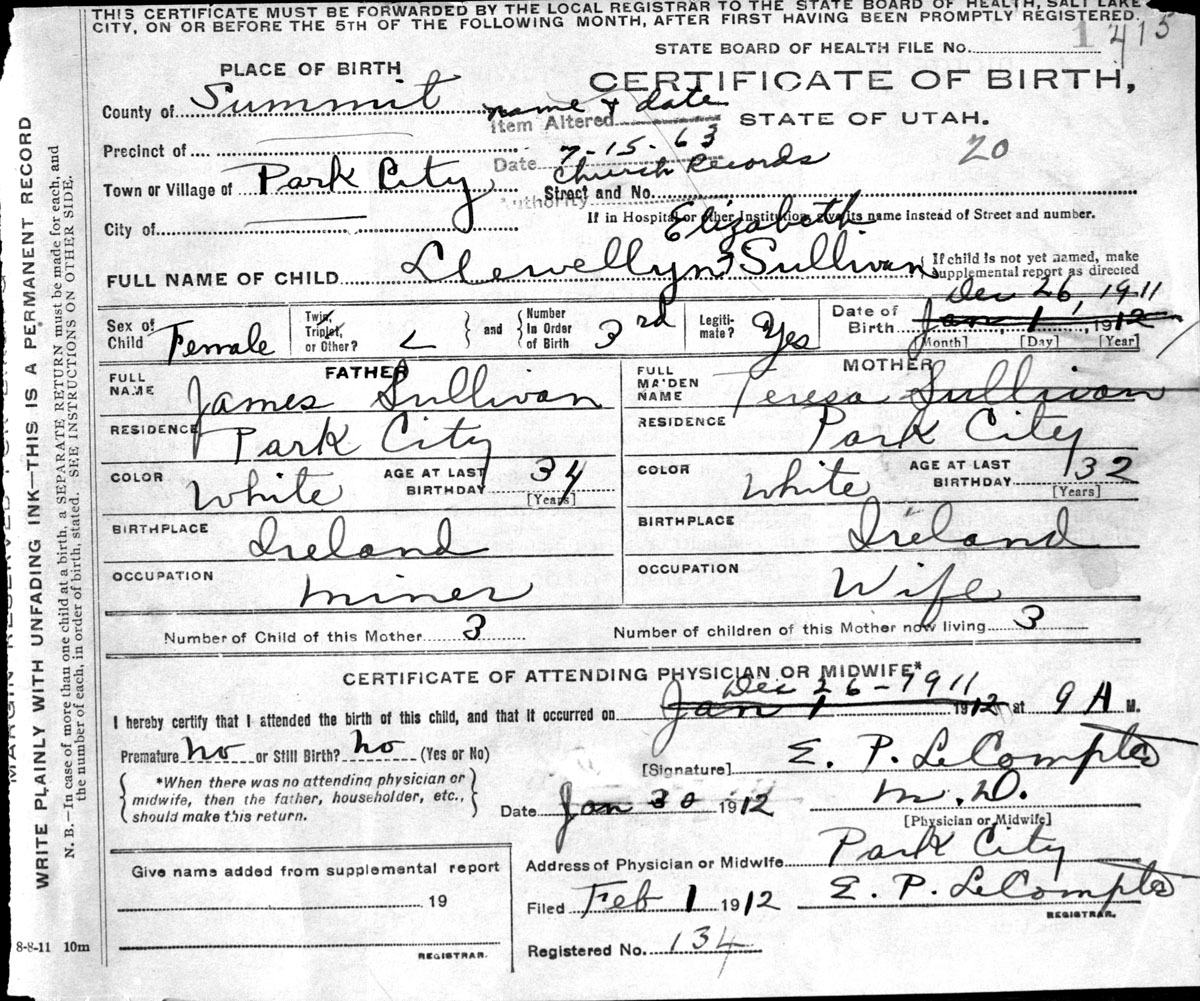 THIS CERTIFICATE MUST BE FORWARDED BY THE LOCAL REGISTRAR TO THE STATE BOARD OF HEALTH, SALT LAKE
CITY, ON OR BEFORE THE 5TH OF THE FOLLOWING MONTH, AFTER FIRST HAVING BEEN PROMPTLY REGISTERED.
STATE BOARD OF HEALTH FILE No. 1 415
PLACE OF BIRTH
CERTIFICATE OF BIRTH,
County of Summit
name & date
Item Altered
STATE OF UTAH.
Precinct of
Date 7-15-63
20
Church Records
Town or Village of Park City
Street and No.
Authority
If in Hospital or other Institution, give its name instead of Street and number.
City of
Elizabeth
FULL NAME OF CHILD Llewellyn Sullivan
If child is not yet named, make
supplemental report as directed
Dec 26, 1911
Sex of Child Female
Twin, Triplet, or Other?
and
Number In Order of Birth 3rd
Legiti-mate? Yes
Date of Birth Jan, 1, 1912
[Month] [Day] [Year]
FATHER
MOTHER
FULL NAME James Sullivan
FULL MAIDEN NAME Teresa Sullivan
RESIDENCE Park City
RESIDENCE Park City
COLOR White AGE AT LAST BIRTHDAY 34 [Years]
COLOR White AGE AT LAST BIRTHDAY 32 [Years]
BIRTHPLACE Ireland
BIRTHPLACE Ireland
OCCUPATION Miner
OCCUPATION Wife
Number of Child of this Mother 3
Number of children of this Mother now living 3
CERTIFICATE OF ATTENDING PHYSICIAN OR MIDWIFE*
Dec 26-1911
I hereby certify that I attended the birth of this child, and that it occurred on Jan 1 1912 at 9 A M.
Premature No or Still Birth? No (Yes or No)
[Signature] E. P. LeCompte
*When there was no attending physician or
midwife, then the father, householder, etc.,
should make this return.
Date Jan 30 1912
M.D.
[Physician or Midwife]
Address of Physician or Midwife Park City
Give name added from supplemental report
19
REGISTRAR.
Filed Feb 1 1912 E. P. LeCompte
REGISTRAR.
Registered No. 134
8-8-11 10m
WRITE PLAINLY WITH UNFADING INK—THIS IS A PERMANENT RECORD
N. B.—In case of more than one child at a birth, a SEPARATE RETURN must be made for each, and
the number of each, in order of birth, stated. SEE INSTRUCTIONS ON OTHER SIDE.
MARGIN RESERVED FOR